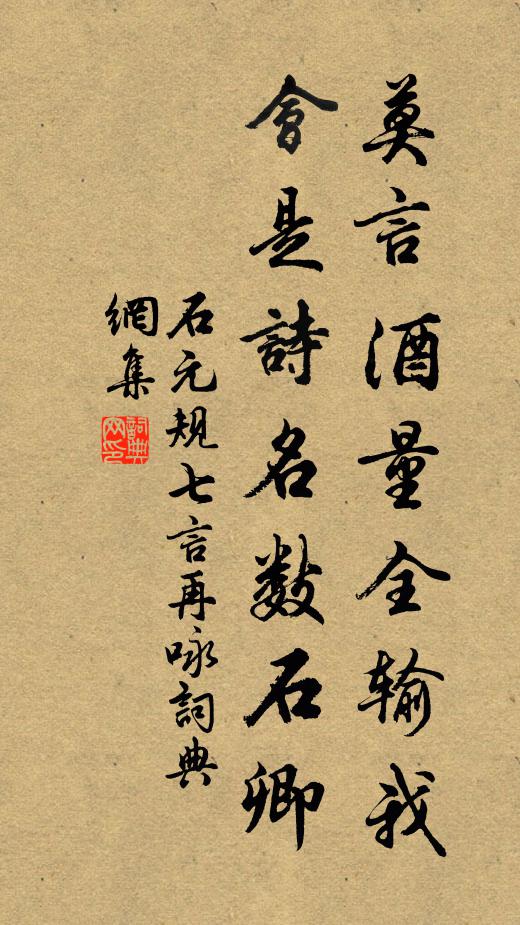 莫言酒量全輸我
會是詩名數石卿
石元規七言再咏詞典
網集
詞典
网印